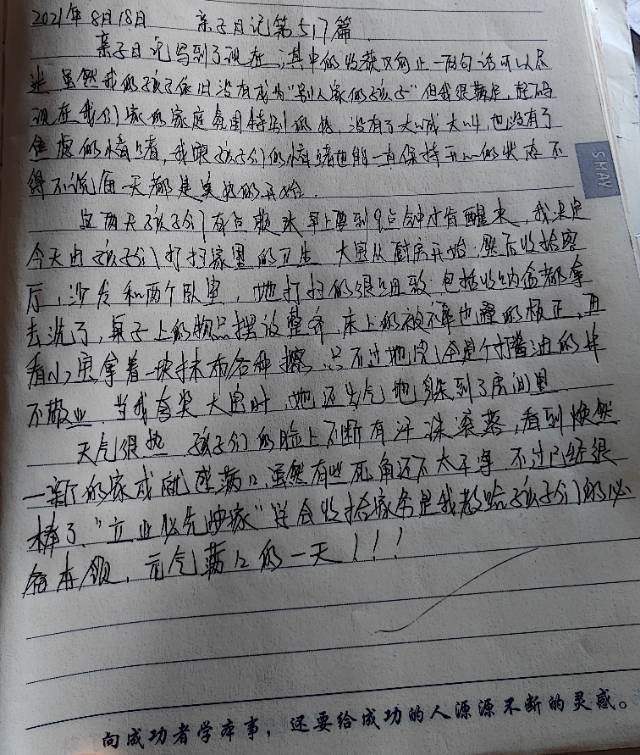 2021年8月18日 亲子日记第517篇
亲子日记写到了现在,其中的收获又何止一两句话可以尽
述 虽然我的孩子依旧没有成为"别人家的孩子"但我很满足,起码
现在我们家的家庭氛围特别的好 没有了大喊大叫,也没有了
焦虑的情绪,我跟孩子们的情绪也能一直保持开心的状态 不
得不说每一天都是美好的开始.
这两天孩子们放松下来 早上要到9点钟才肯醒来,我决定
今天由孩子们打扫家里的卫生 大宝从厨房开始.然后收拾客
厅,沙发和两个卧室,她打扫的很细致.包括收纳舍都拿
去洗了,桌子上的物品摆放整齐 床上的被子单也理的板正,再
看小宝拿着一块抹布各种擦.只不过她完全是个打酱油的毕
不敬业 当我夸奖大宝时,她还生气地躲到了房间里
天气很热 孩子们的脸上不断有汗珠滚落,看到焕然
一新的家成就感满口,虽然有些死角还不太干净 不过已经很
棒了."立业必先也家"学会收拾家务是我教给孩子们的必
备本领,元气满口的一天!!!
SHAY
向成功者学本事,还要给成功的人源源不断的灵感。